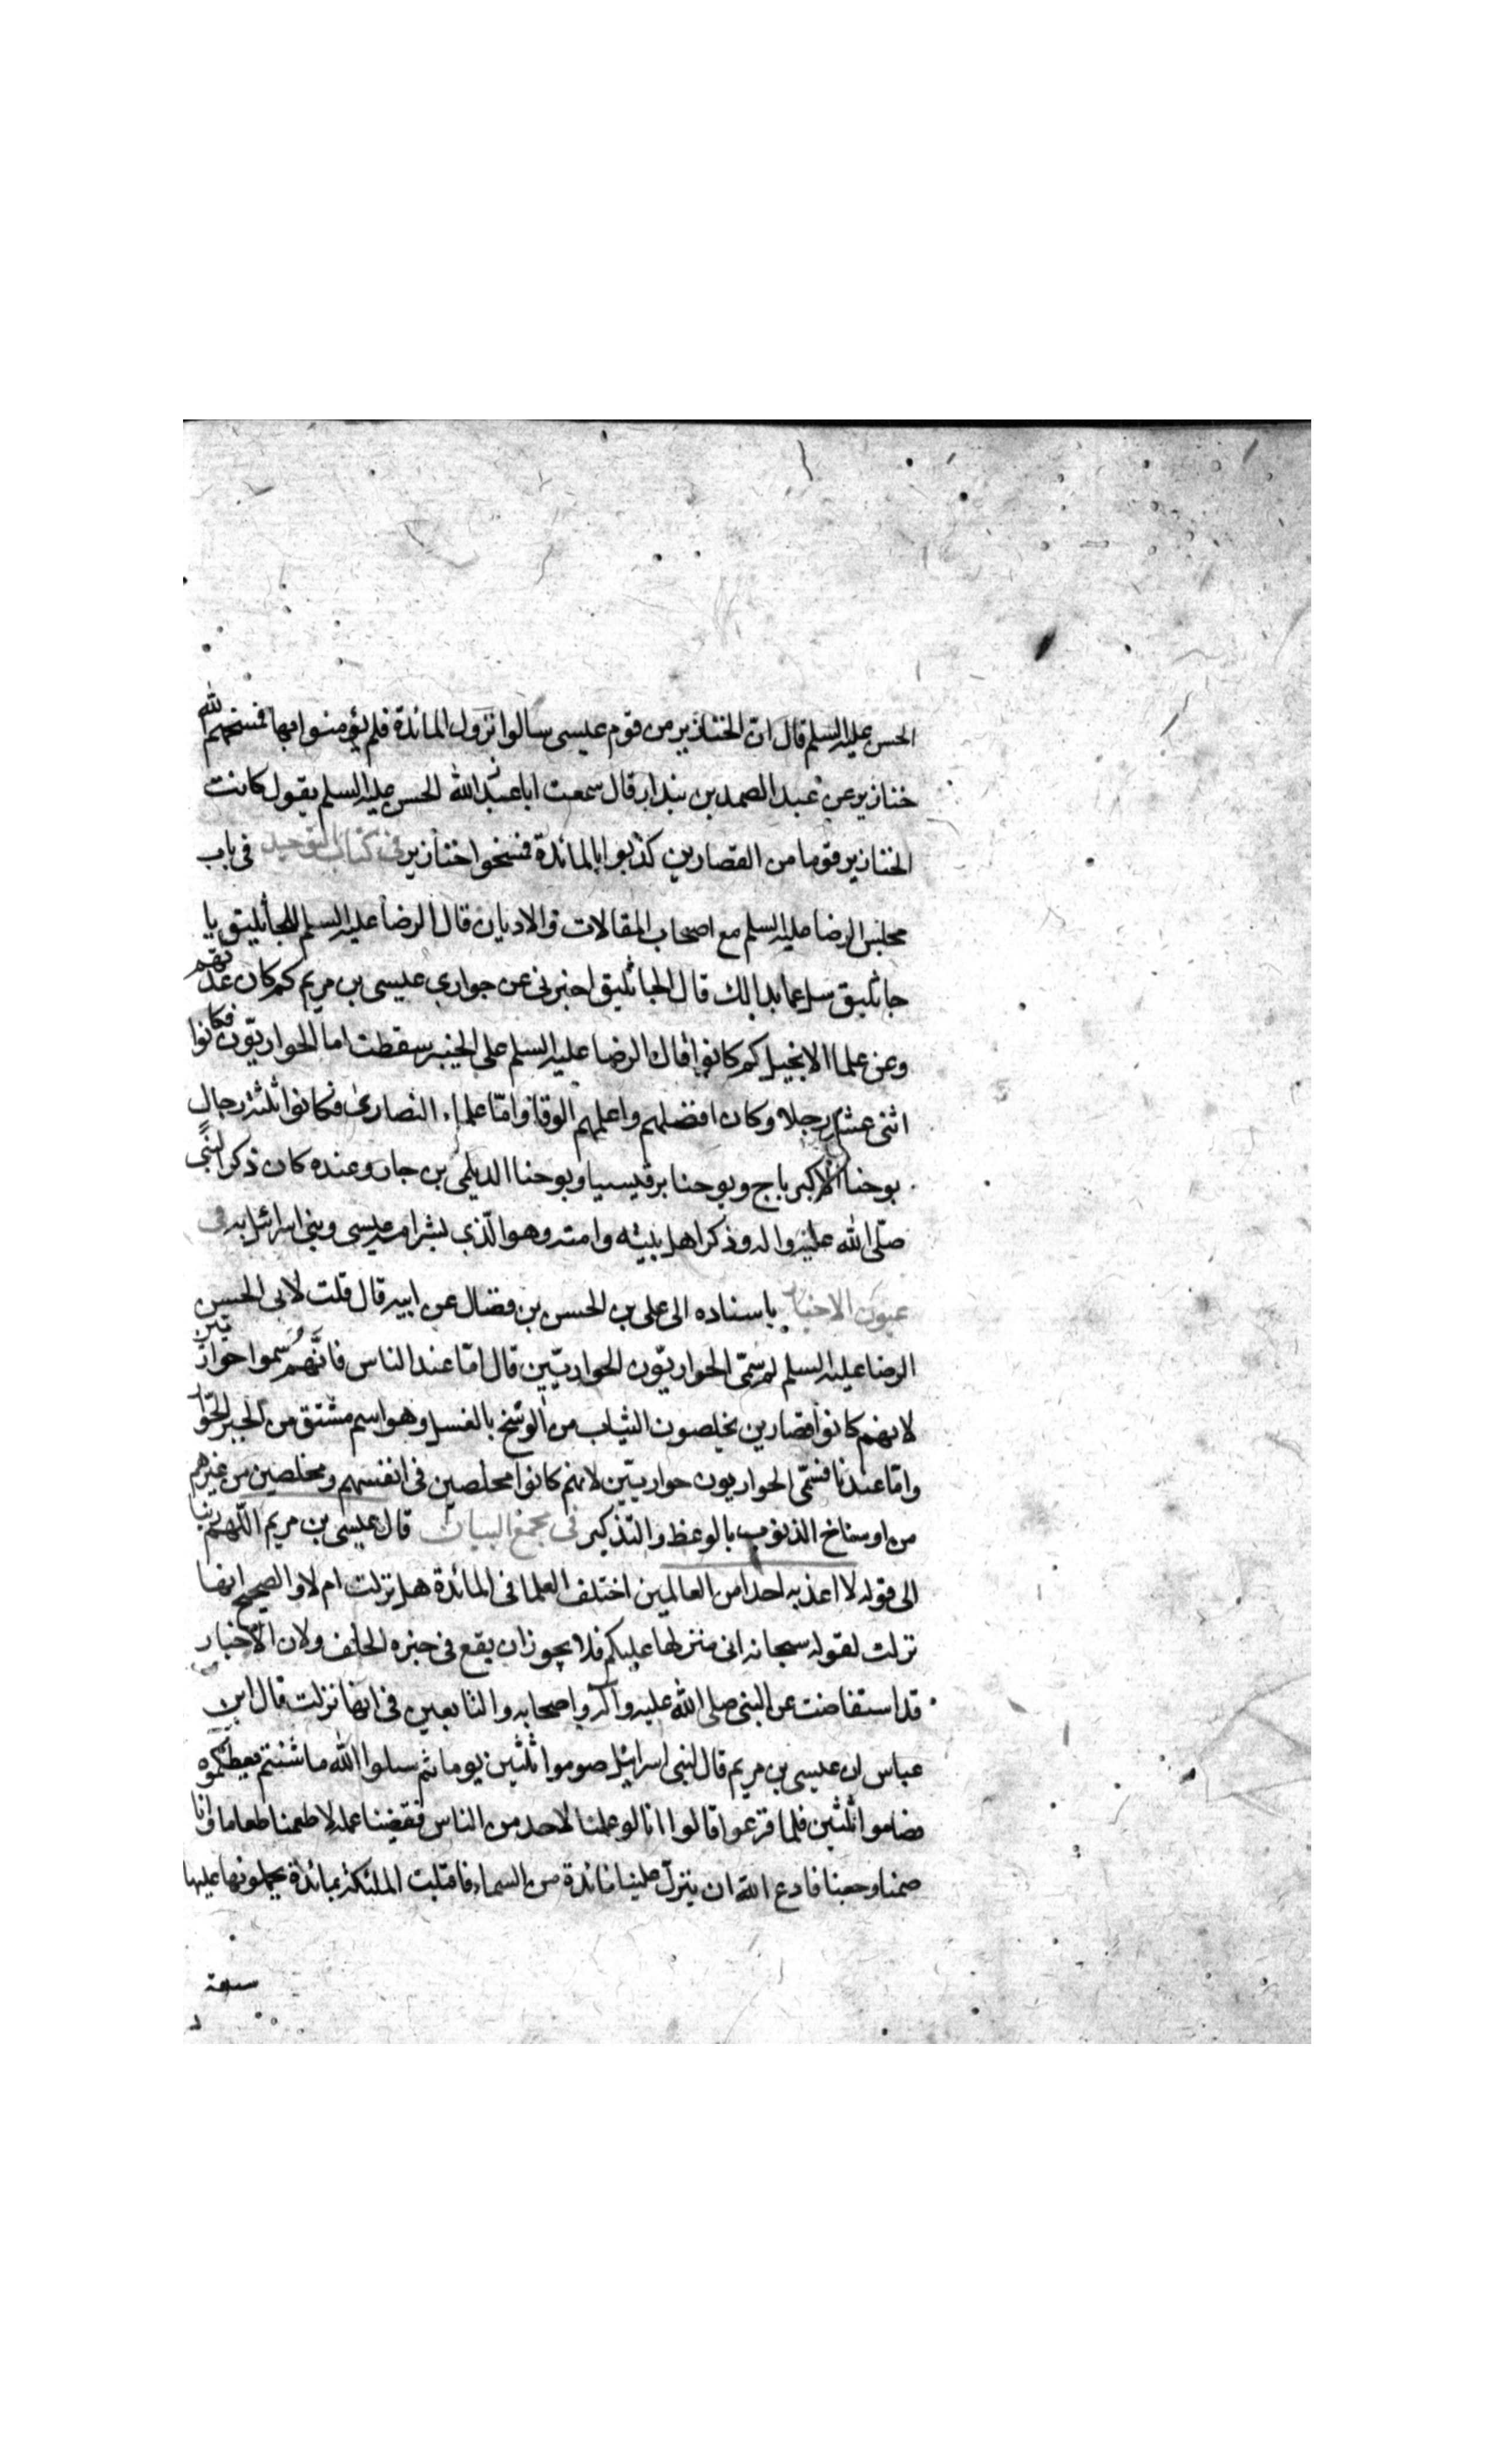 الحسن عليه السلم قال ان الخنازير من قوم عيسى سالوا نزول المائدة فلم يؤمنوا بها فمسخهم الله
خنازير عن عبد الصمد بن بندار قال سمعت ابا عبد الله الحسن عليه السلم يقول كانت
الخنازير قوما من القصارين كذبوا بالمائدة فمسخوا خنازير فى كتاب التوحيد فى باب
مجلس الرضا عليه السلم مع اصحاب المقالات والاديان قال الرضا عليه السلم للجاثليق يا
جاثليق سل عما بدا لك قال الجاثليق اخبرنى عن حوارى عيسى بن مريم كم كان عدتهم
وعن علما الانجيل كم كانوا قال الرضا عليه السلم على الخبير سقطت اما الحواريون فكانوا
اثنى عشر رجلا وكان افضلهم واعلمهم الوقا واما علماء النصارى فكانوا ثلثة رجال
يوحنا الاكبر باج ويوحنا برقيسيا ويوحنا الديلمى بن جار وعنده كان ذكر النبى
صلى الله عليه واله وذكر اهل بيته وامته وهو الذى بشر امة عيسى وبنى اسرائيل به فى
عيون الاخبار باسناده الى على بن الحسن بن فضال عن ابيه قال قلت لابى الحسن
الرضا عليه السلم لم سمّى الحواريّون الحواريّين قال امّا عند الناس فانّهم سُموا حواريّين
لانهم كانوا قصارين يخلصون الثياب من الوسخ بالغسل وهو اسم مشتق من الخبز الحوار
وامّا عندنا فسمّى الحواريون حواريّين لانهم كانوا مخلصين فى انفسهم ومخلصين من غيرهم
من اوساخ الذنوب بالوعظ والتذكير فى مجمع البيان قال عيسى بن مريم اللّهم ربنا
الى قوله لا اعذبه احدا من العالمين اختلف العلما فى المائدة هل نزلت ام لا والصحيح انها
نزلت لقوله سبحانه انى منزلها عليكم فلا يجوز ان يقع فى خبره الخلف ولان الاخبار
قد استفاضت عن النبى صلى الله عليه وآله واصحابه والتابعين فى انها نزلت قال ابن
عباس ان عيسى بن مريم قال لبنى اسرائيل صوموا ثلثين يوما ثم سلوا الله ما شئتم يعطيكموه
فصاموا ثلثين فلما فرغوا قالوا انا لو عملنا لاحد من الناس فقضينا عمله لاطعمنا طعاما وانا
صمنا وجعنا فادع الله ان ينزل علينا مائدة من السماء فاقبلت الملئكة بمائدة يحملونها عليها
سبعة